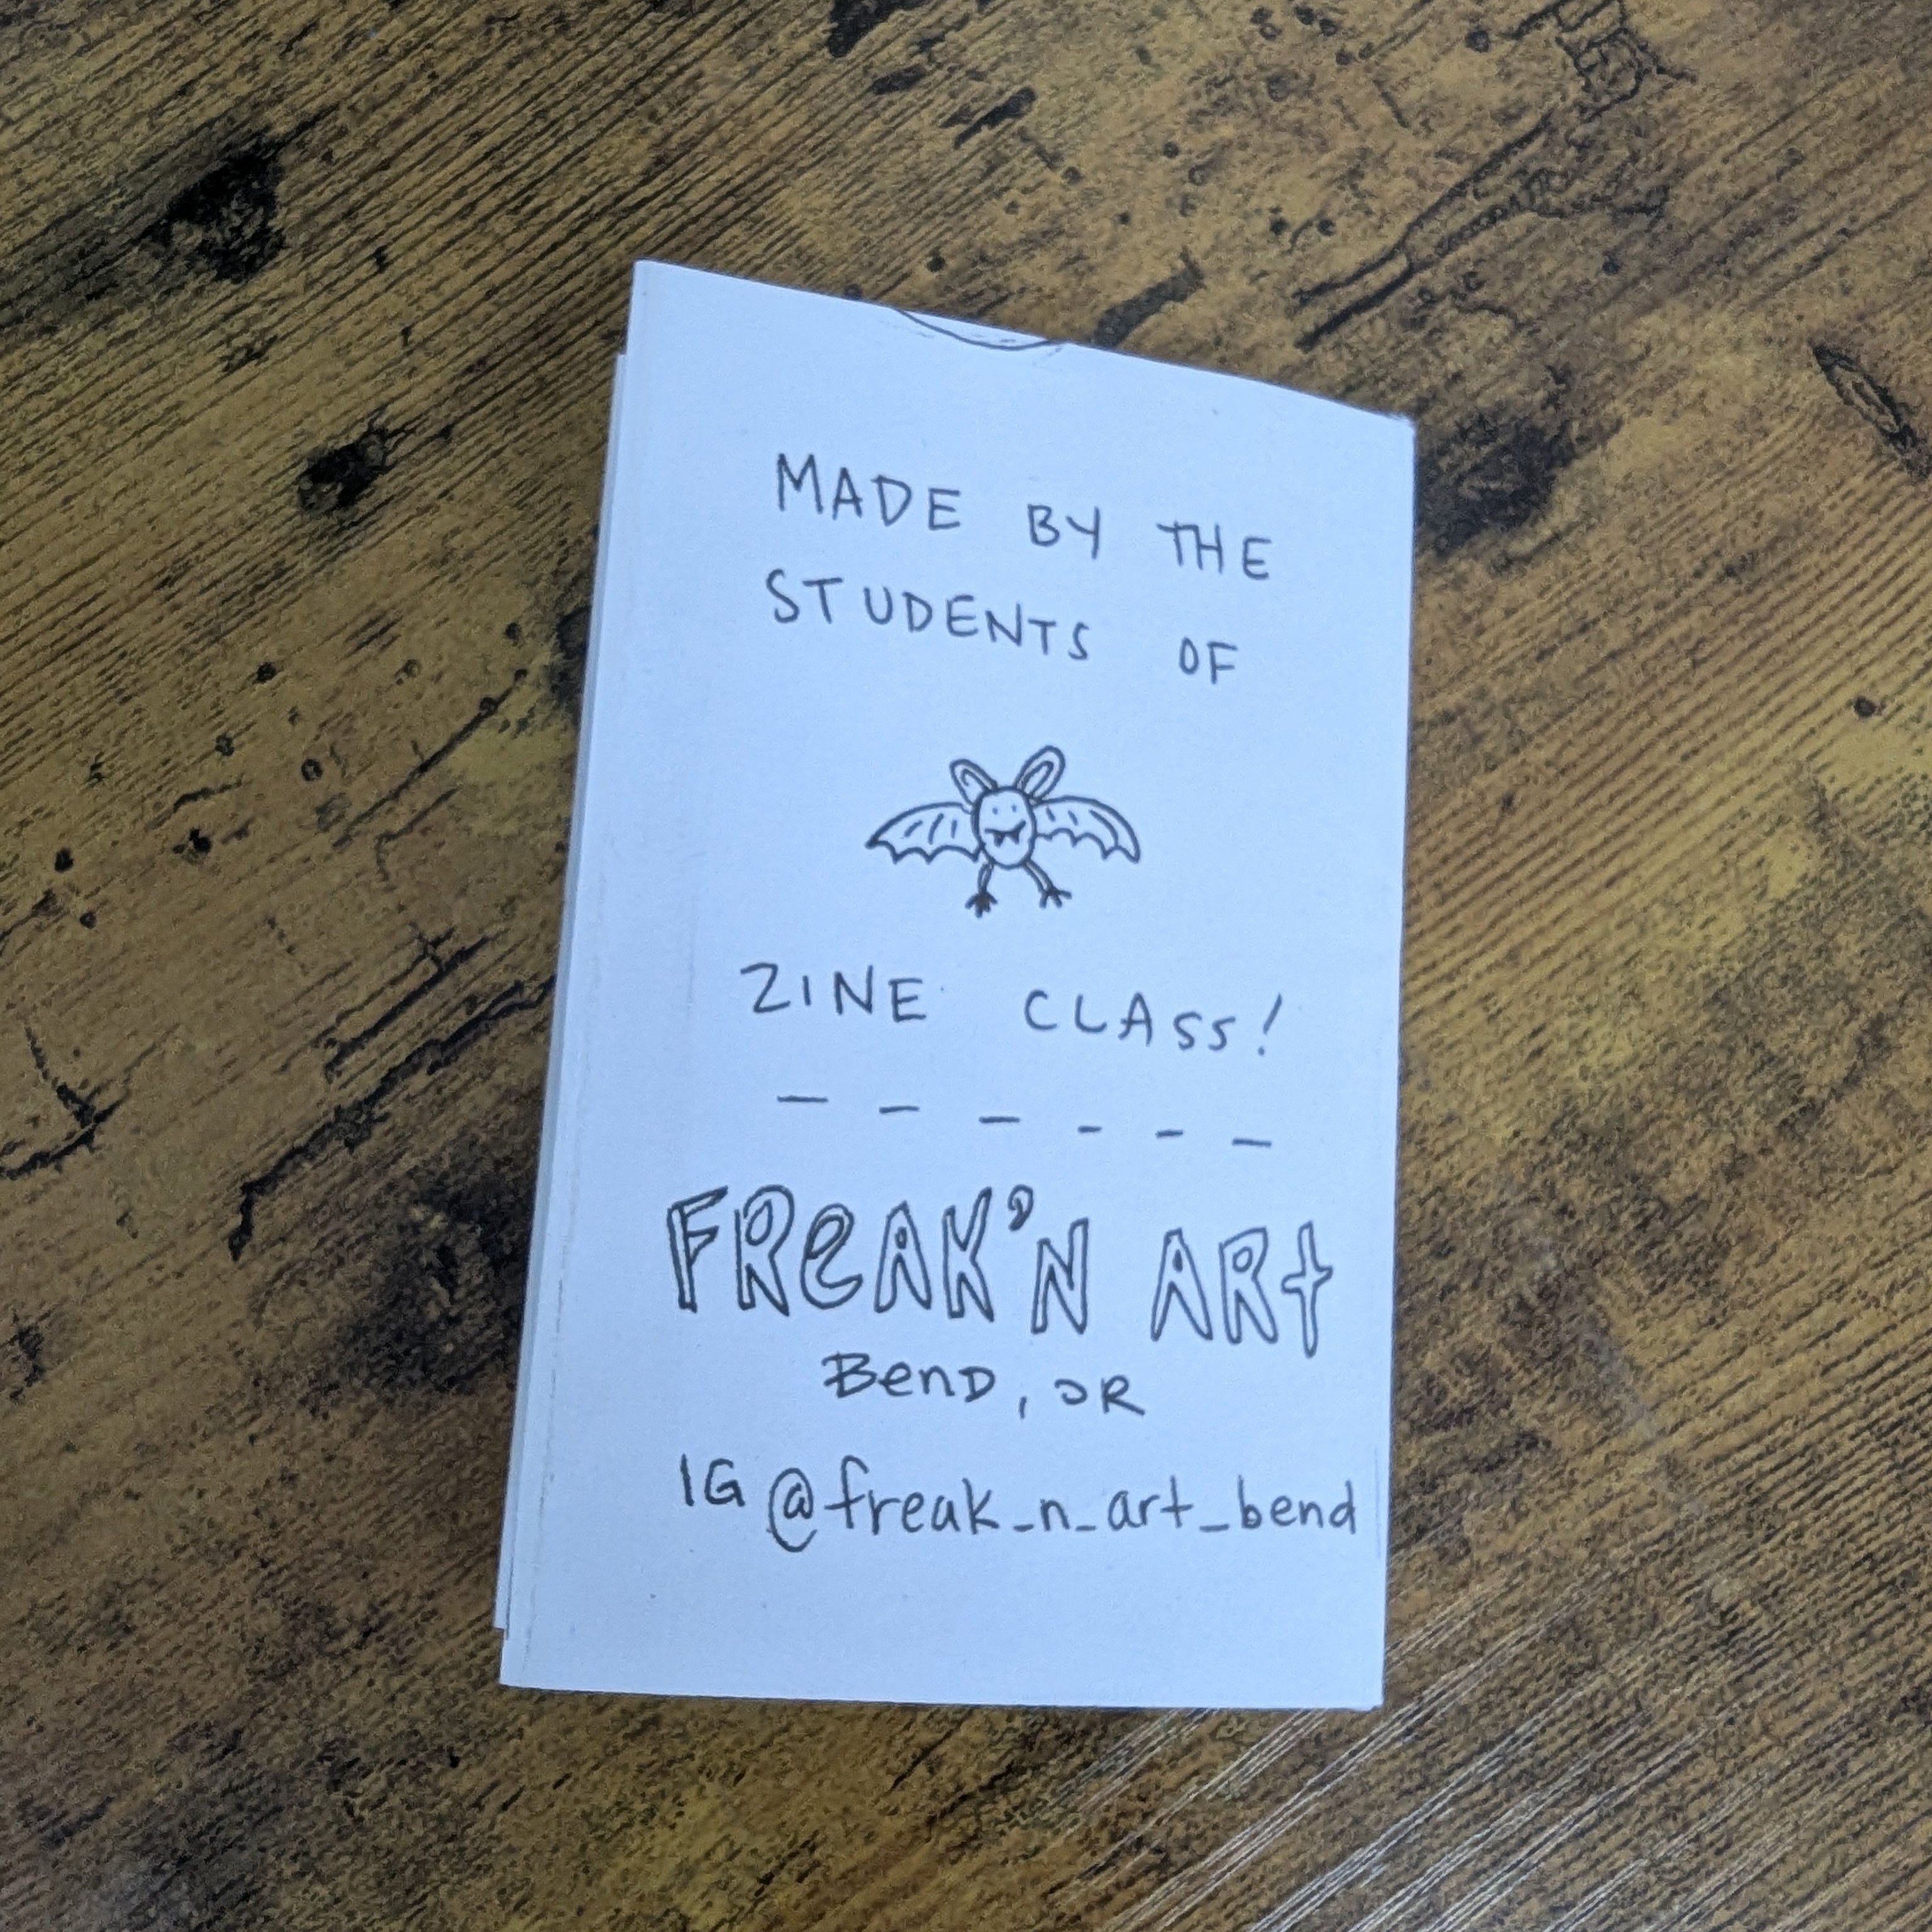 MADE BY THE
STUDENTS OF
ZINE CLASS!
FReAK'N ARt
BenD, OR
IG @freak_n_art_bend